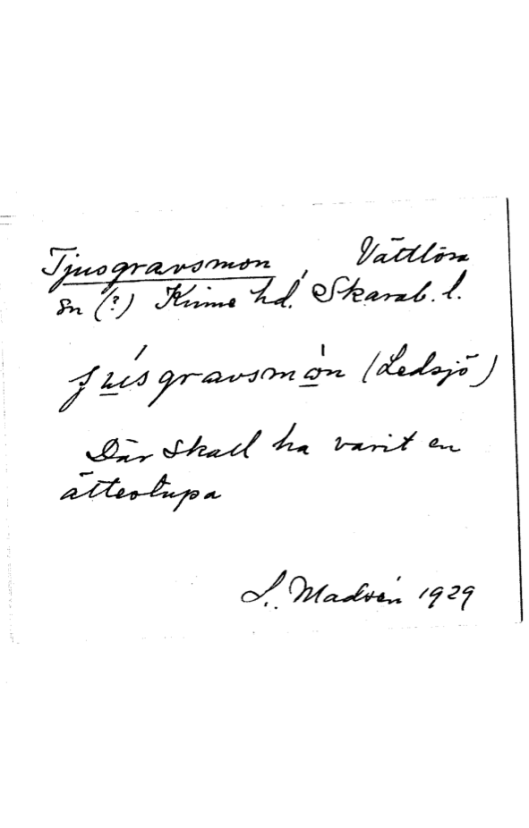 Tjusgravsmon, Vättlösa
sn (?) Kinne hd. Skarab. l.
ʃu̲sgravsmo̲n (Ledsjö)
Där skall ha varit en
ättestupa
L. Madsén 1929